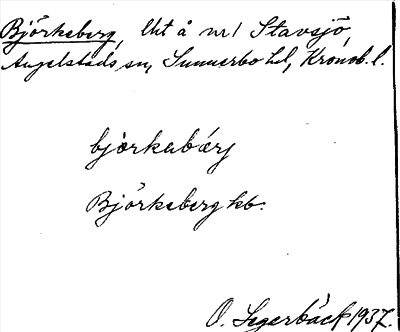 Björkeberg, lht å nr 1 Stavsjö,
Angelstads sn, Sunnerbo hd, Kronob. l.
björkabärj
Björkeberg kb.
O. Segerbäck 1937.